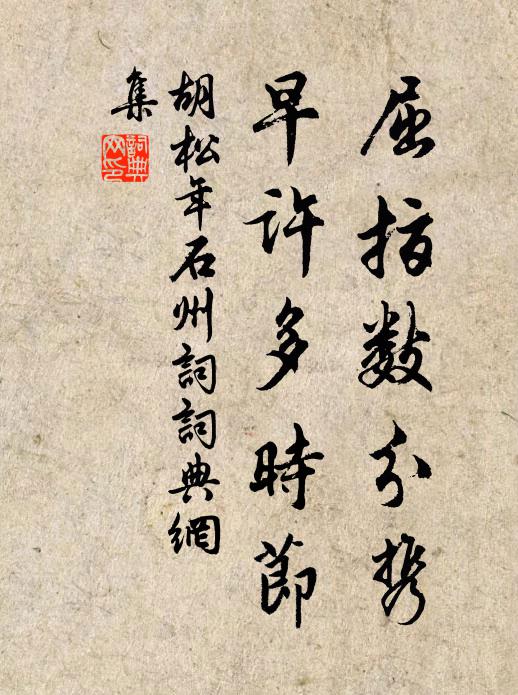 屈指數分攜
早許多時節
胡松年石州詞詞典網
集
詞典
网印